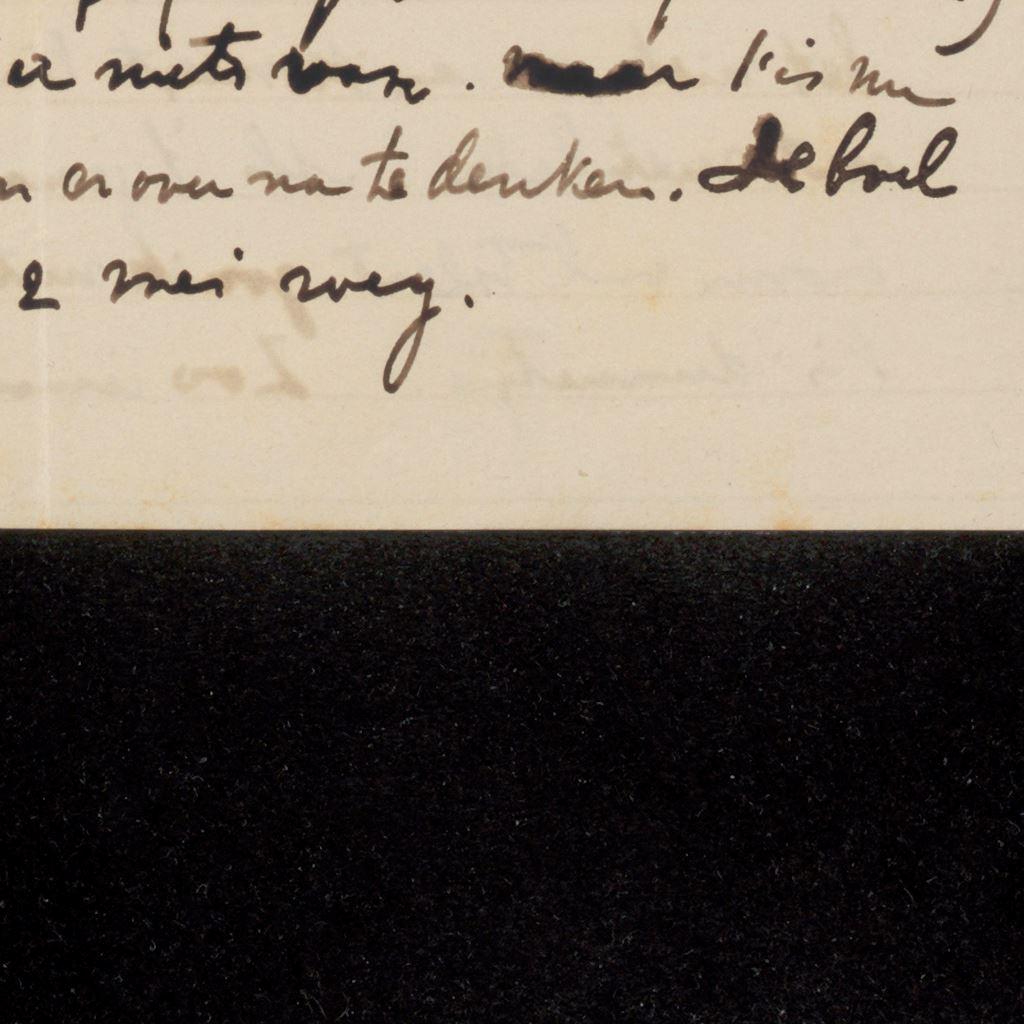 er niets van. maar 't is nu
er over na te denken. De boel
2 mei weg.